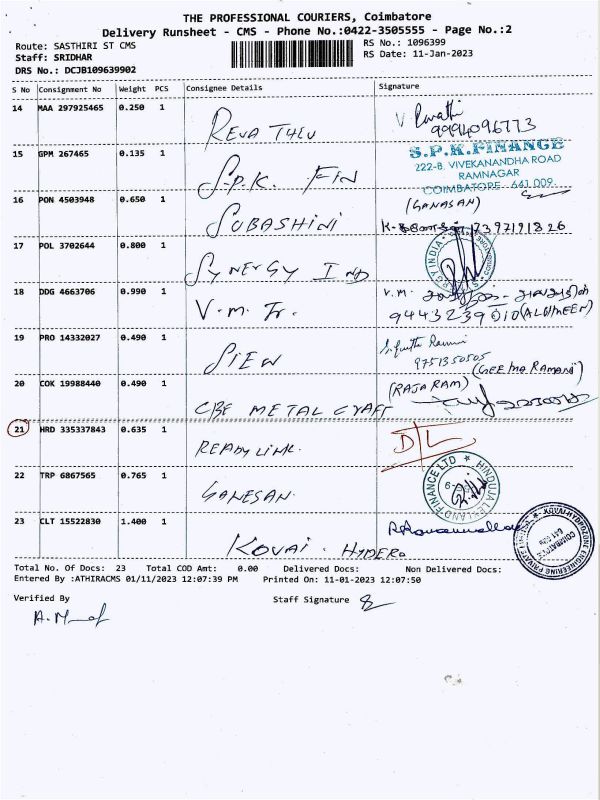 THE PROFESSIONAL COURIERS, Coimbatore
Delivery Runsheet - CMS - Phone No.:0422-3505555 - Page No.:2
Route: SASTHIRI ST CMS
RS No.: 1096399
Staff: SRIDHAR
RS Date: 11-Jan-2023
DRS No.: DCJB109639902
S No Consignment No Weight PCS Consignee Details Signature
14 MAA 297925465 0.250 1
REVATHEU
9994096773
15 GPM 267465 0.135 1
S.P.K. FIN
S.P.K. FINANCE
222-B, VIVEKANANDHA ROAD
RAMNAGAR
COIMBATORE - 641 009.
16 PON 4503948 0.650 1
SUBASHINI
(GANASAN)
7397191826
17 POL 3702644 0.800 1
SYNERGY IND
18 DDG 4663706 0.990 1
V.M. Tr.
V.M.
19 PRO 14332027 0.490 1
SIEW
9751350505
20 COK 19988440 0.490 1
CBE METAL CRAFT
(RAJARAM)
21 HRD 335337843 0.635 1
READYLINK.
D/L
22 TRP 6867565 0.765 1
GANESAN.
HINDUJA LEYLAND FINANCE LTD
23 CLT 15522830 1.400 1
KOVAI. HYDERO
Total No. Of Docs: 23 Total COD Amt: 0.00 Delivered Docs: Non Delivered Docs:
Entered By :ATHIRACMS 01/11/2023 12:07:39 PM Printed On: 11-01-2023 12:07:50
Verified By
Staff Signature